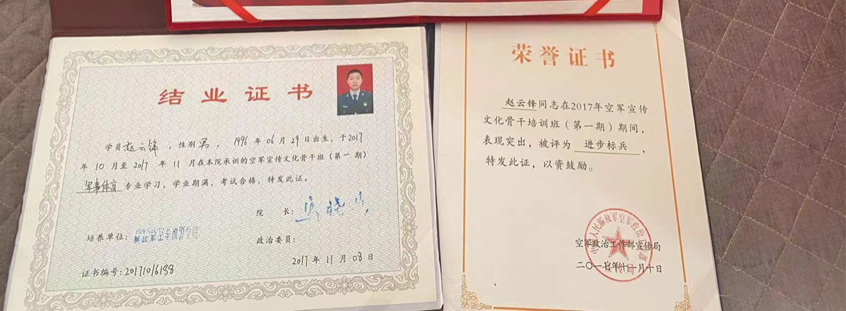 结业证书
学员赵云锋，性别男，1996年06月29日出生，于2017
年10月至2017年11月在本院承训的空军宣传文化骨干班（第一期）
军事体育专业学习，学业期满，考试合格，特发此证。
院长：
培养单位：
政治委员：
证书编号：2017106188
2017年11月08日
荣誉证书
赵云锋同志在2017年空军宣传
文化骨干培训班（第一期）期间，
表现突出，被评为 进步标兵，
特发此证，以资鼓励。
空军政治工作部宣传局
二〇一七年十一月十日